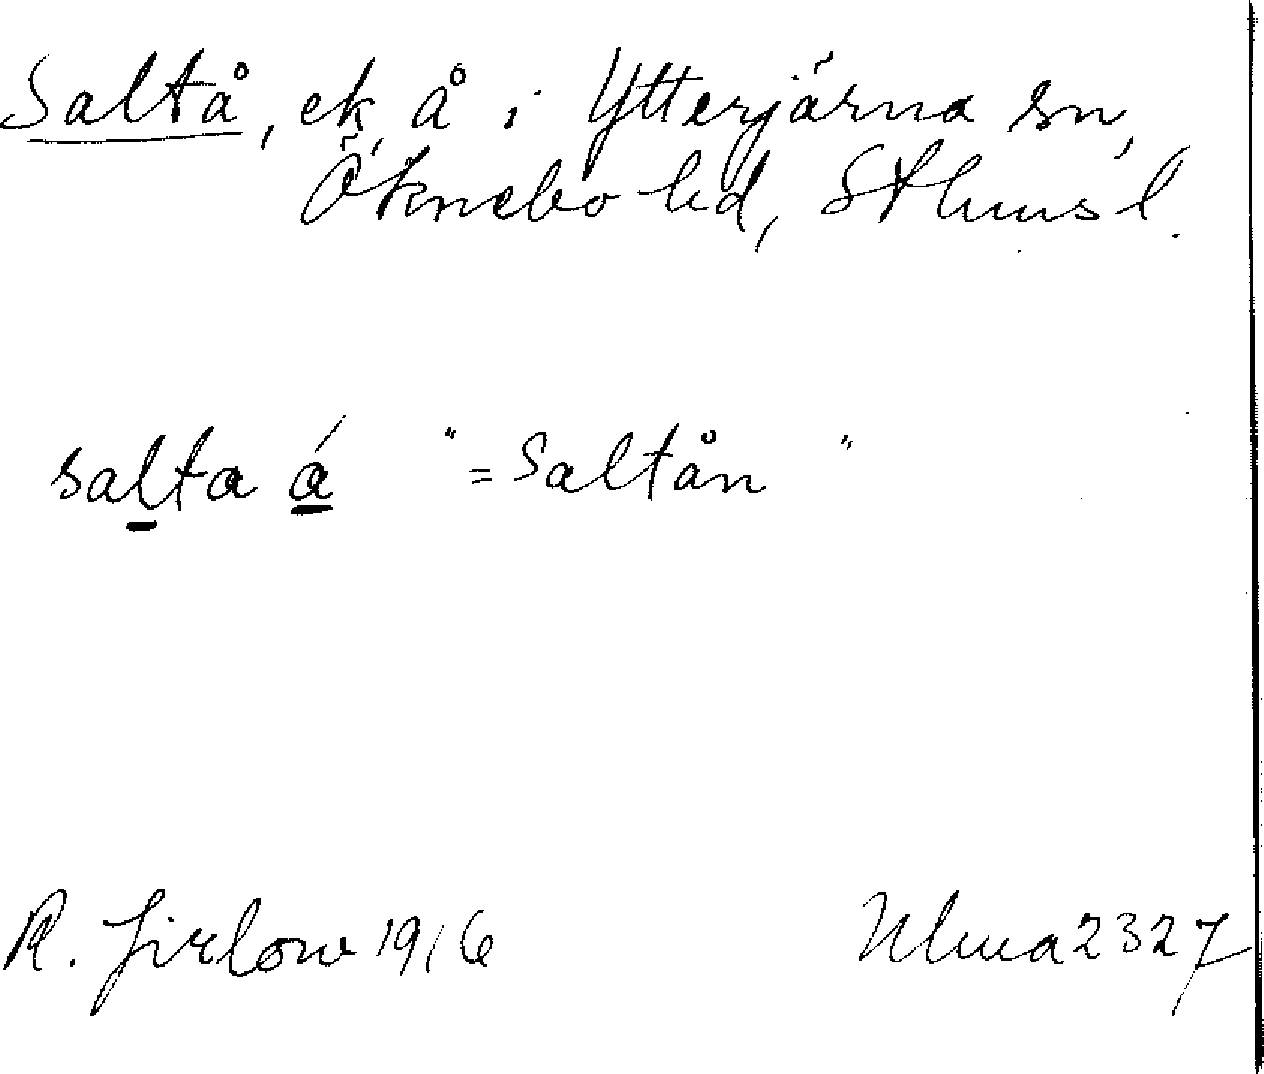 Saltå, ek, å i Ytterjärna sn,
Öknebo hd, Sthms l.
salta á "=Saltån"
R. Jirlow 1916 Ulma 2327